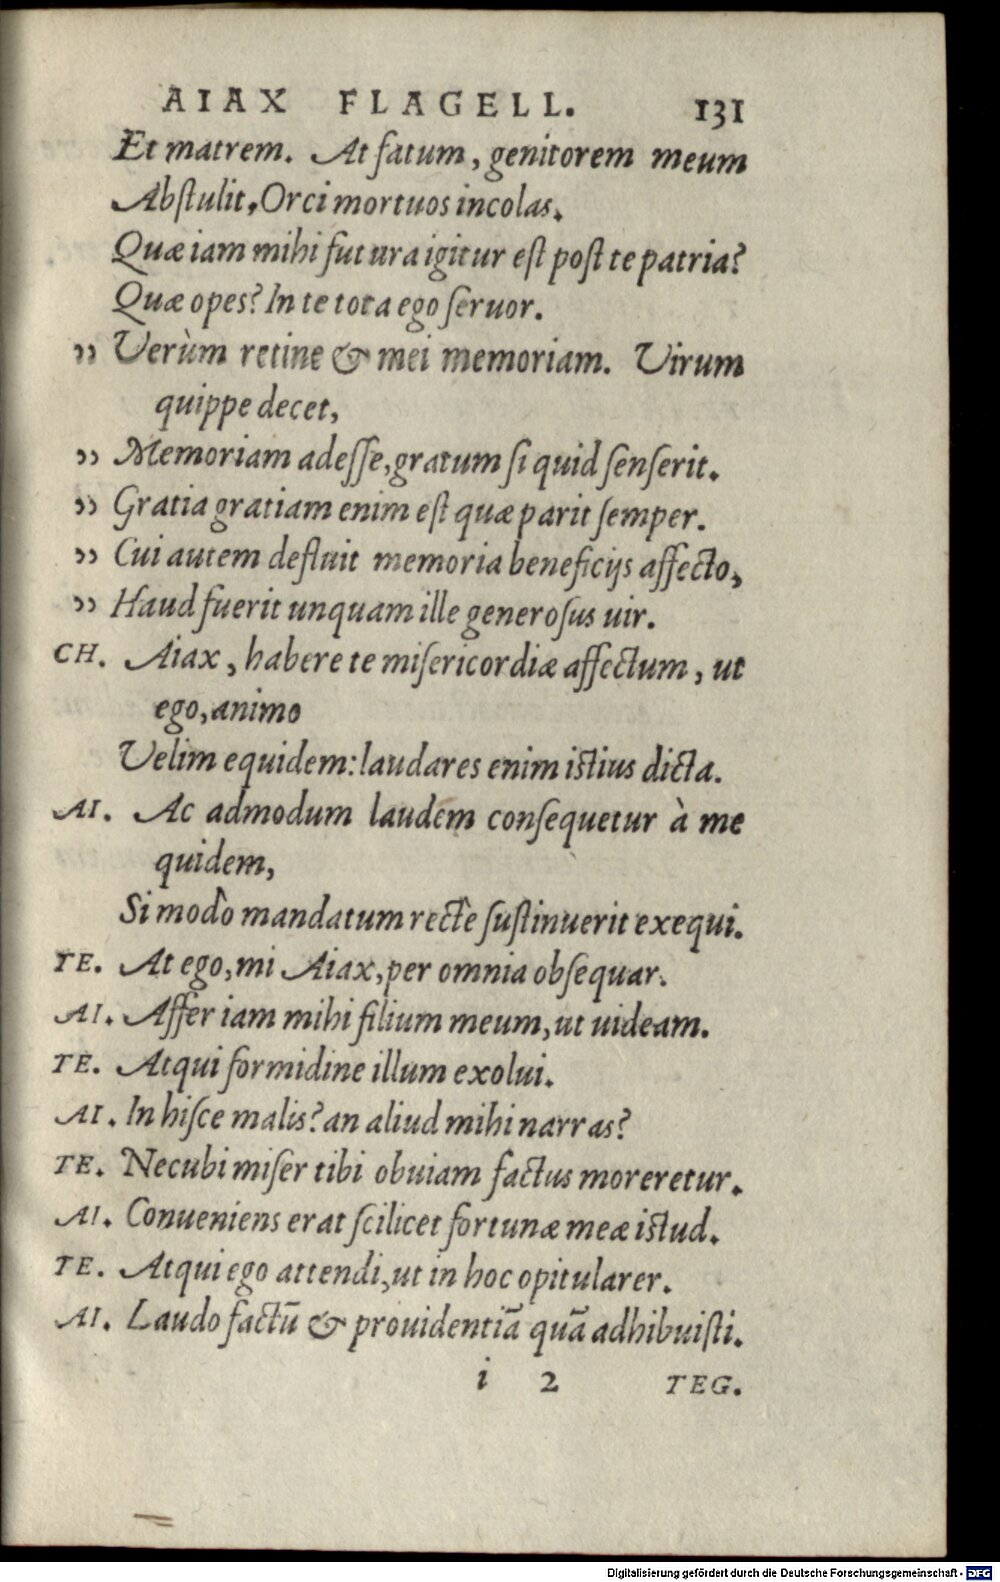 AIAX FLAGELL. 131
Et matrem. At fatum, genitorem meum
Abſtulit, Orci mortuos incolas.
Quæ iam mihi futura igitur eſt poſt te patria?
Quæ opes? In te tota ego ſeruor.
›› Verùm retine & mei memoriam. Virum
quippe decet,
›› Memoriam adeſſe, gratum ſi quid ſenſerit.
›› Gratia gratiam enim eſt quæ parit ſemper.
›› Cui autem defluit memoria beneficijs affecto,
›› Haud fuerit unquam ille generoſus uir.
CH. Aiax, habere te miſericordiæ affectum, ut
ego, animo
Velim equidem: laudares enim iſtius dicta.
AI. Ac admodum laudem conſequetur à me
quidem,
Si modò mandatum rectè ſuſtinuerit exequi.
TE. At ego, mi Aiax, per omnia obſequar.
AI. Affer iam mihi filium meum, ut uideam.
TE. Atqui formidine illum exolui.
AI. In hiſce malis? an aliud mihi narras?
TE. Necubi miſer tibi obuiam factus moreretur.
AI. Conueniens erat ſcilicet fortunæ meæ iſtud.
TE. Atqui ego attendi, ut in hoc opitularer.
AI. Laudo factū & prouidentiā quā adhibuiſti.
i 2 TEG.
Digitalisierung gefördert durch die Deutsche Forschungsgemeinschaft - DFG